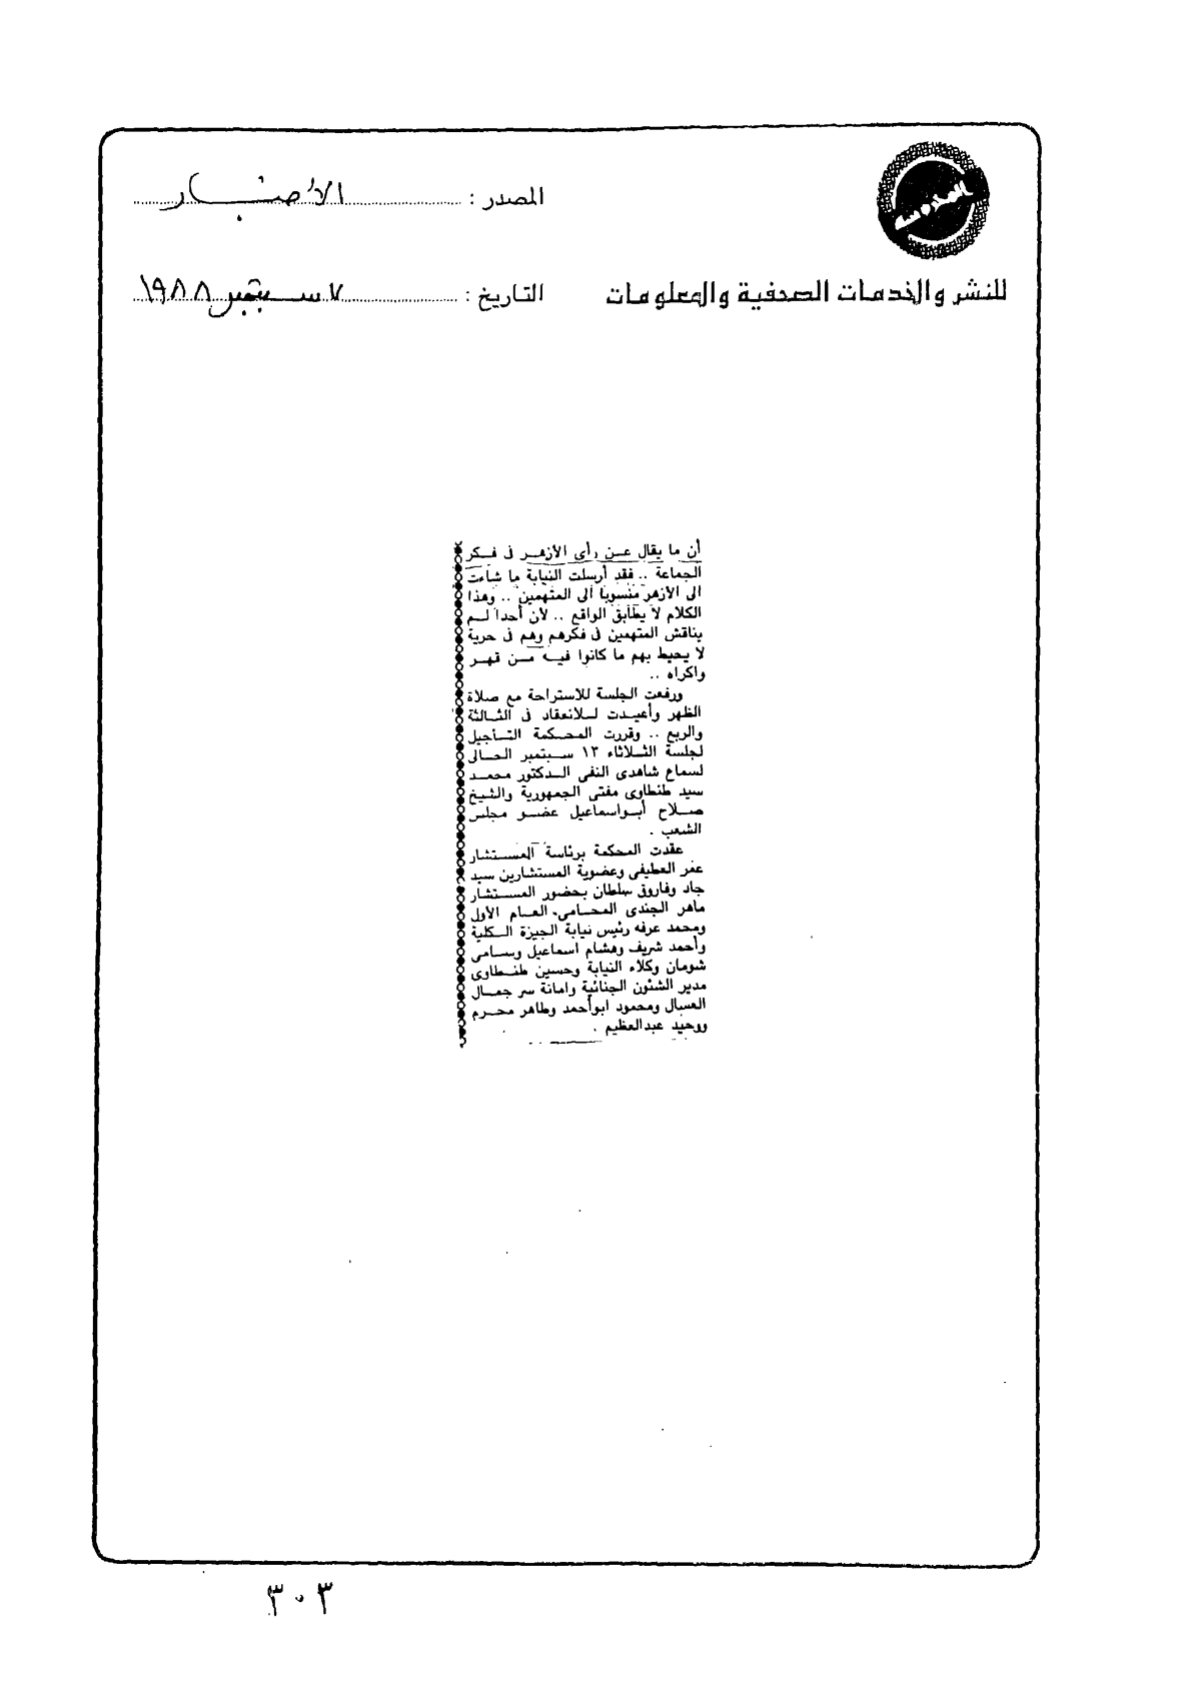 المصدر : الأخبار
للنشر والخدمات الصحفية والمعلومات
التاريخ : ٧ سبتمبر ١٩٨٨
أن ما يقال عن رأى الأزهر فى فكر
الجماعة .. فقد أرسلت النيابة ما شاءت
الى الأزهر منسوبا الى المتهمين .. وهذا
الكلام لا يطابق الواقع .. لأن أحدا لم
يناقش المتهمين فى فكرهم وهم فى حرية
لا يحيط بهم ما كانوا فيه من قهر
واكراه ..
ورفعت الجلسة للاستراحة مع صلاة
الظهر وأعيدت للانعقاد فى الثالثة
والربع .. وقررت المحكمة التأجيل
لجلسة الثلاثاء ١٣ سبتمبر الحالى
لسماع شاهدى النفى الدكتور محمد
سيد طنطاوى مفتى الجمهورية والشيخ
صلاح أبواسماعيل عضو مجلس
الشعب .
عقدت المحكمة برئاسة المستشار
عمر العطيفى وعضوية المستشارين سيد
جاد وفاروق سلطان بحضور المستشار
ماهر الجندى المحامى العام الأول
ومحمد عرفه رئيس نيابة الجيزة الكلية
وأحمد شريف وهشام اسماعيل وسامى
شومان وكلاء النيابة وحسين طنطاوى
مدير الشئون الجنائية وامانة سر جمال
العسال ومحمود ابوأحمد وطاهر محرم
ووحيد عبدالعظيم .
٣٠٣